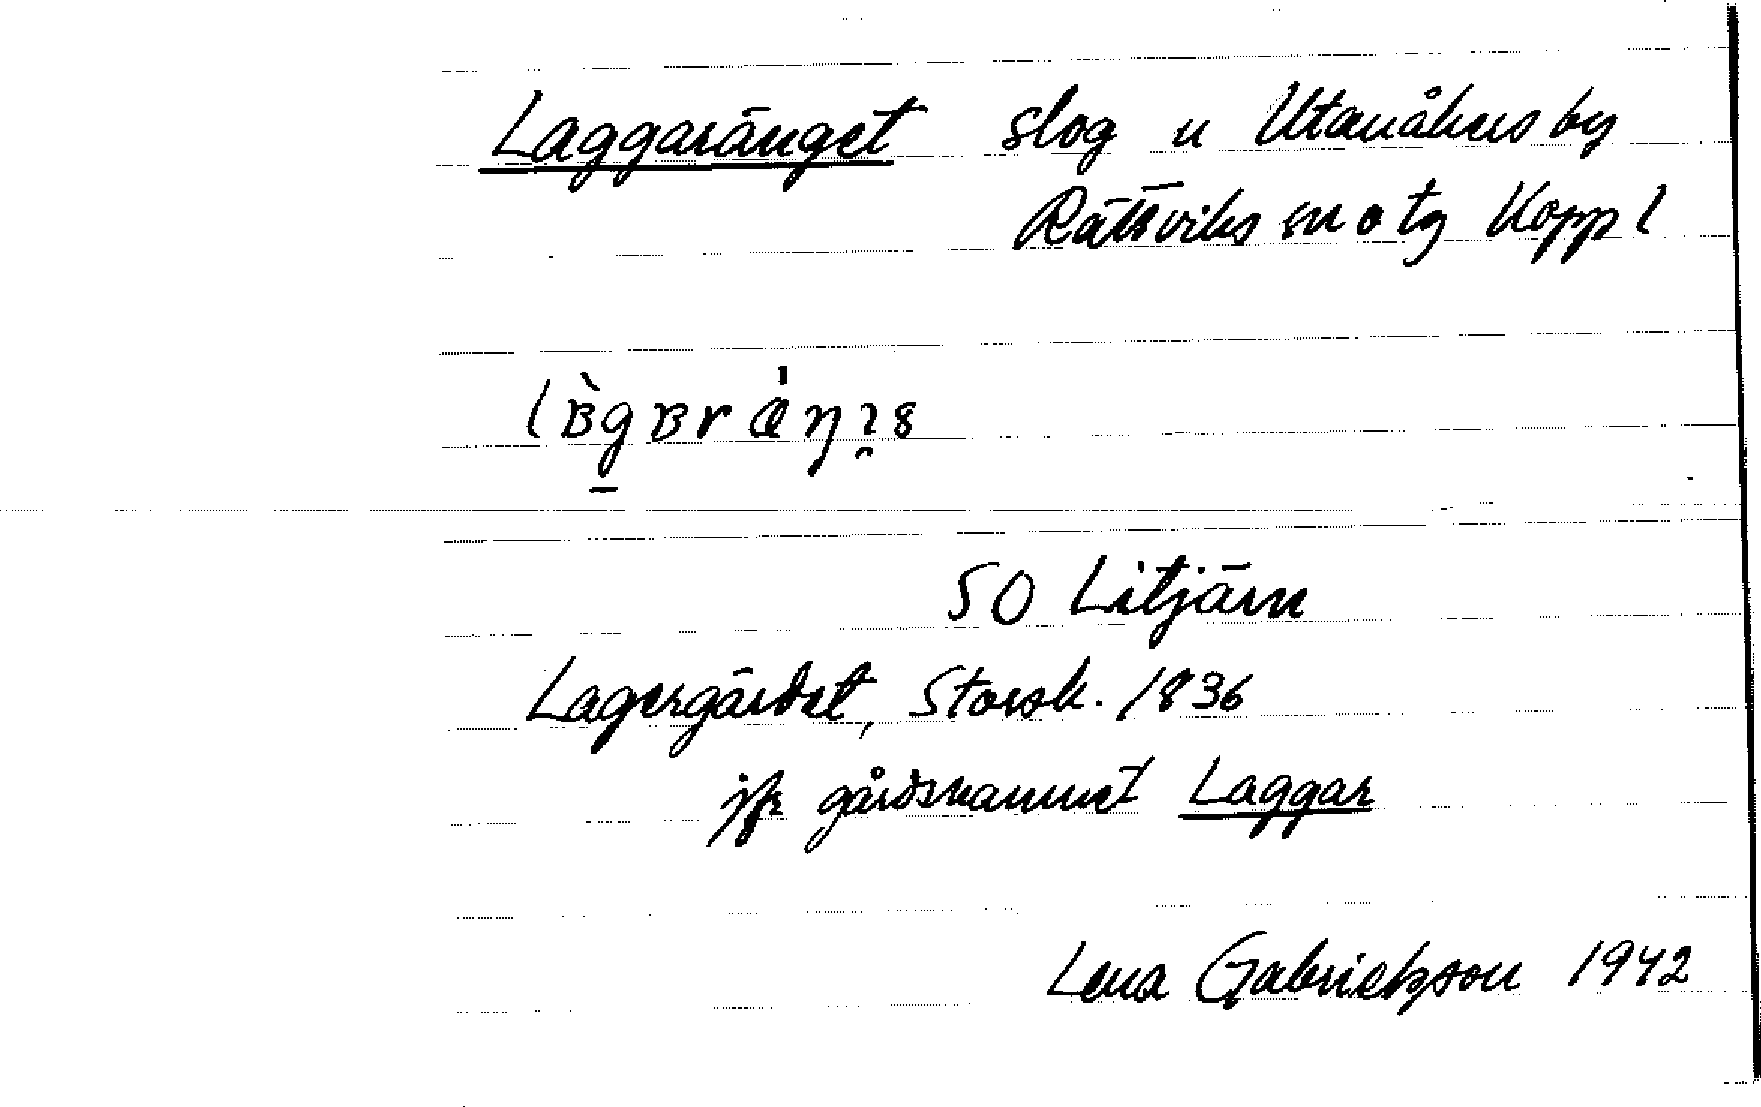 Laggaränget slog u Utanåkers by
Rättviks sn o tg Kopp l
SO Litjärn
Lagergärdet, Storsk. 1836
jfr gårdsnamnet Laggar
Lena Gabrielsson 1942